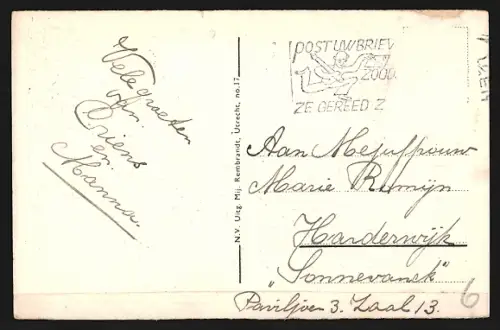 Vele groeten
van.
Criens
en.
Manna.
N.V. Uitg. Mij. Rembrandt, Utrecht, no. 17
POST UW BRIEV
ZOOD
ZE GEREED Z
Aan Mejuffrouw
Marie Romijn
Harderwijk
„Sonnevanck"
Paviljoen 3. Zaal 13.
6